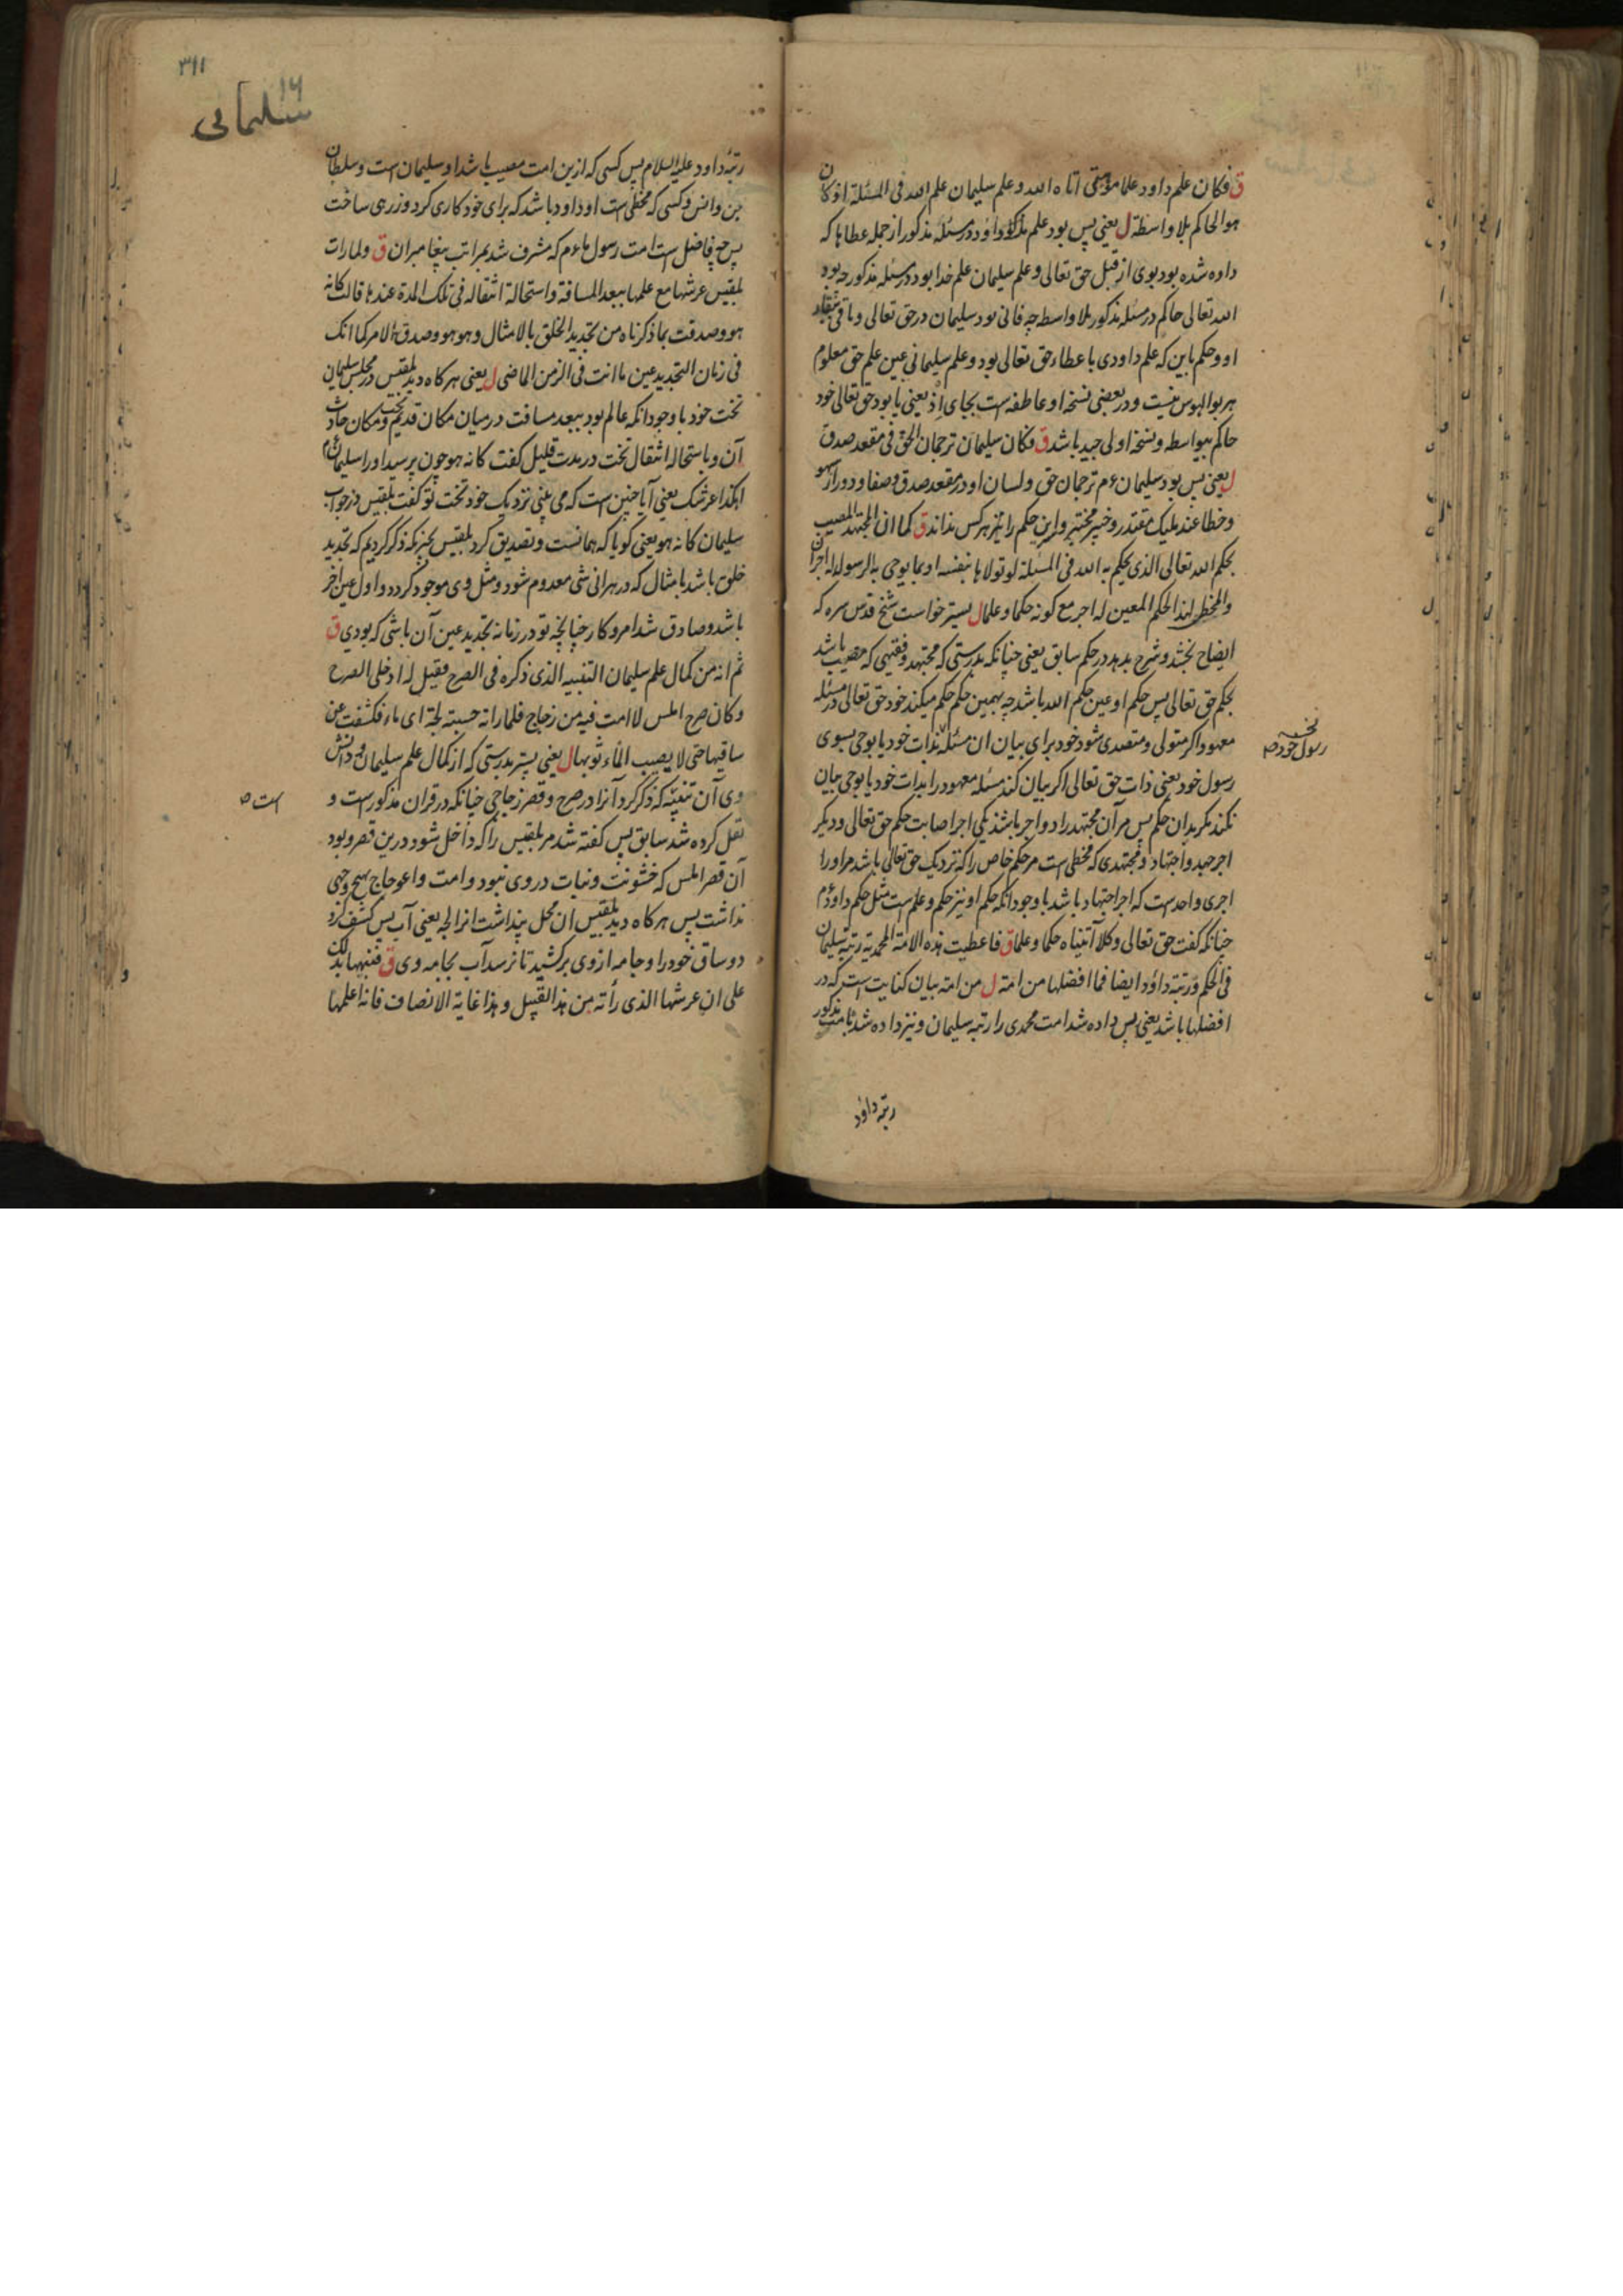 ق فكان علم داود علما موتى آتاه الله وعلم سليمان علم الله فى المسئلة اذ كان
هو الحاكم بلا واسطة ل یعنی پس بود علم مذکور داود در مسئلهٔ مذکور از جمله عطاها که
داده شده بود بوی از قبل حق تعالی و علم سلیمان علم خدا بود در مسئله مذکور چه بود
الله تعالی حاکم در مسئله مذکور بلا واسطه چه فانی بود سلیمان در حق تعالی و باقی ببقاء
او و حکم باین که علم داودی باعطاء حق تعالی بود و علم سلیمانی عین علم حق معلوم
هر بوالهوس نیست و در بعضی نسخه او عاطفه است بجای اذ یعنی یا بود حق تعالی خود
حاکم بیواسطه و نسخه اولی جید باشد ق فكان سليمان ترجمان الحق فى مقعد صدق
ل یعنی پس بود سلیمان ءم ترجمان حق و لسان او در مقعد صدق و صفا و دور از سهو
و خطا عند ملیک مقتدر و خبیر مختبر و این حکم را نیز هر کس نداند ق كما ان المجتهد المصيب
بحكم الله تعالى الذى يحكم به الله فى المسئلة لو تولاها بنفسه او بما يوحى به لرسوله له اجران
والمخطى لهذا الحكم المعين له اجر مع كونه حكما وعلما ل پستر خواست شیخ قدس سره که
ایضاح بخشد و شرح بدهد در حکم سابق یعنی چنانکه بدرستی که مجتهد و فقیهی که مصیب باشد
بحکم حق تعالی پس حکم او عین حکم الله باشد چه بهمین حکم حکم میکند خود حق تعالی در مسئله
معهود اگر متولی و متصدی شود خود برای بیان ان مسئله بذات خود یا بوحی بسوی
رسول خود یعنی ذات حق تعالی اگر بیان کند مسئله معهود را بذات خود یا بوحی بیان
نکند مگر بدان حکم پس مر آن مجتهد را دو اجر باشد یکی اجر اصابت حکم حق تعالی و دیگر
اجر جهد و اجتهاد و مجتهدی که مخطی است مر حکم خاص را که نزدیک حق تعالی باشد مر او را
اجری واحد ست که اجر اجتهاد باشد با وجود آنکه حکم او نیز حکم و علم است مثل حکم داود ءم
چنانکه گفت حق تعالی وکلا آتیناه حکما وعلما ق فاعطيت هذه الامة المحمدية رتبة سليمان
فى الحكم ورتبة داود ايضا فما افضلها من امة ل من امة بیان کنایت است که در
افضلها باشد یعنی پس داده شد امت محمدی را رتبه سلیمان و نیز داده شد بامت مذکور
رتبه داود
نسخه
رسول خود ص
۳۱۱
۱۶
سلیمانی
رتبهٔ داود علیه السلام پس کسی که ازین امت مصیب باشد او سلیمان است و سلطان
جن و انس و کسی که مخطی است او داود باشد که برای خود کاری کرد و زرهی ساخت
پس چه فاضل است امت رسول ما ءم که مشرف شد بمراتب پیغامبران ق ولما رات
بلقيس عرشها مع علمها ببعد المسافة واستحالة انتقاله فى تلك المدة عندها قالت كانه
هو وصدقت بما ذكرناه من تجديد الخلق بالامثال وهو هو وصدق الامر كما انك
فى زمان التجديد عين ما انت فى الزمن الماضى ل یعنی هرگاه دید بلقیس در مجلس سلیمان
تخت خود با وجود آنکه عالم بود ببعد مسافت درمیان مکان قدیم تخت و مکان حادث
آن و باستحاله انتقال تخت در مدت قلیل گفت کانه هو چون پرسید او را سلیمان ءم
اهکذا عرشک یعنی آیا چنین است که می بینی نزدیک خود تخت تو گفت بلقیس در جواب
سلیمان کانه هو یعنی گویا که همانست و تصدیق کرد بلقیس بچیزیکه ذکر کردیم که تجدید
خلق باشد بامثال که در هر آنی شی معدوم شود و مثل وی موجود گردد و اول عین آخر
باشد و صادق شد امر و کار چنانچه تو در زمانه تجدید عین آن باشی که بودی ق
ثم انه من كمال علم سليمان التنبيه الذى ذكره فى الصرح فقيل لها ادخلى الصرح
وكان صرح املس لا امت فيه من زجاج فلما راته حسبته لجة اى ماء فكشفت عن
ساقيها حتى لا يصيب الماء ثوبها ل یعنی پستر بدرستی که از کمال علم سلیمان و دانش
وی آن تنبیه که ذکر کرد آنرا در صرح و قصر زجاجی چنانکه در قران مذکور است و
نقل کرده شد سابق پس گفته شد مر بلقیس را که داخل شو درین قصر و بود
آن قصر املس که خشونت و نبات در وی نبود و امت و اعوجاج بهیچ وجهی
نداشت پس هرگاه دید بلقیس ان محل پنداشت انرا لجه یعنی آب پس کشف کرد
دو ساق خود را و جامه ازوی برکشید تا نرسد آب بجامه وی ق فنبهها بذلك
على ان عرشها الذى رأته من هذا القبيل وهذا غاية الانصاف فانه اعلمها
است ص